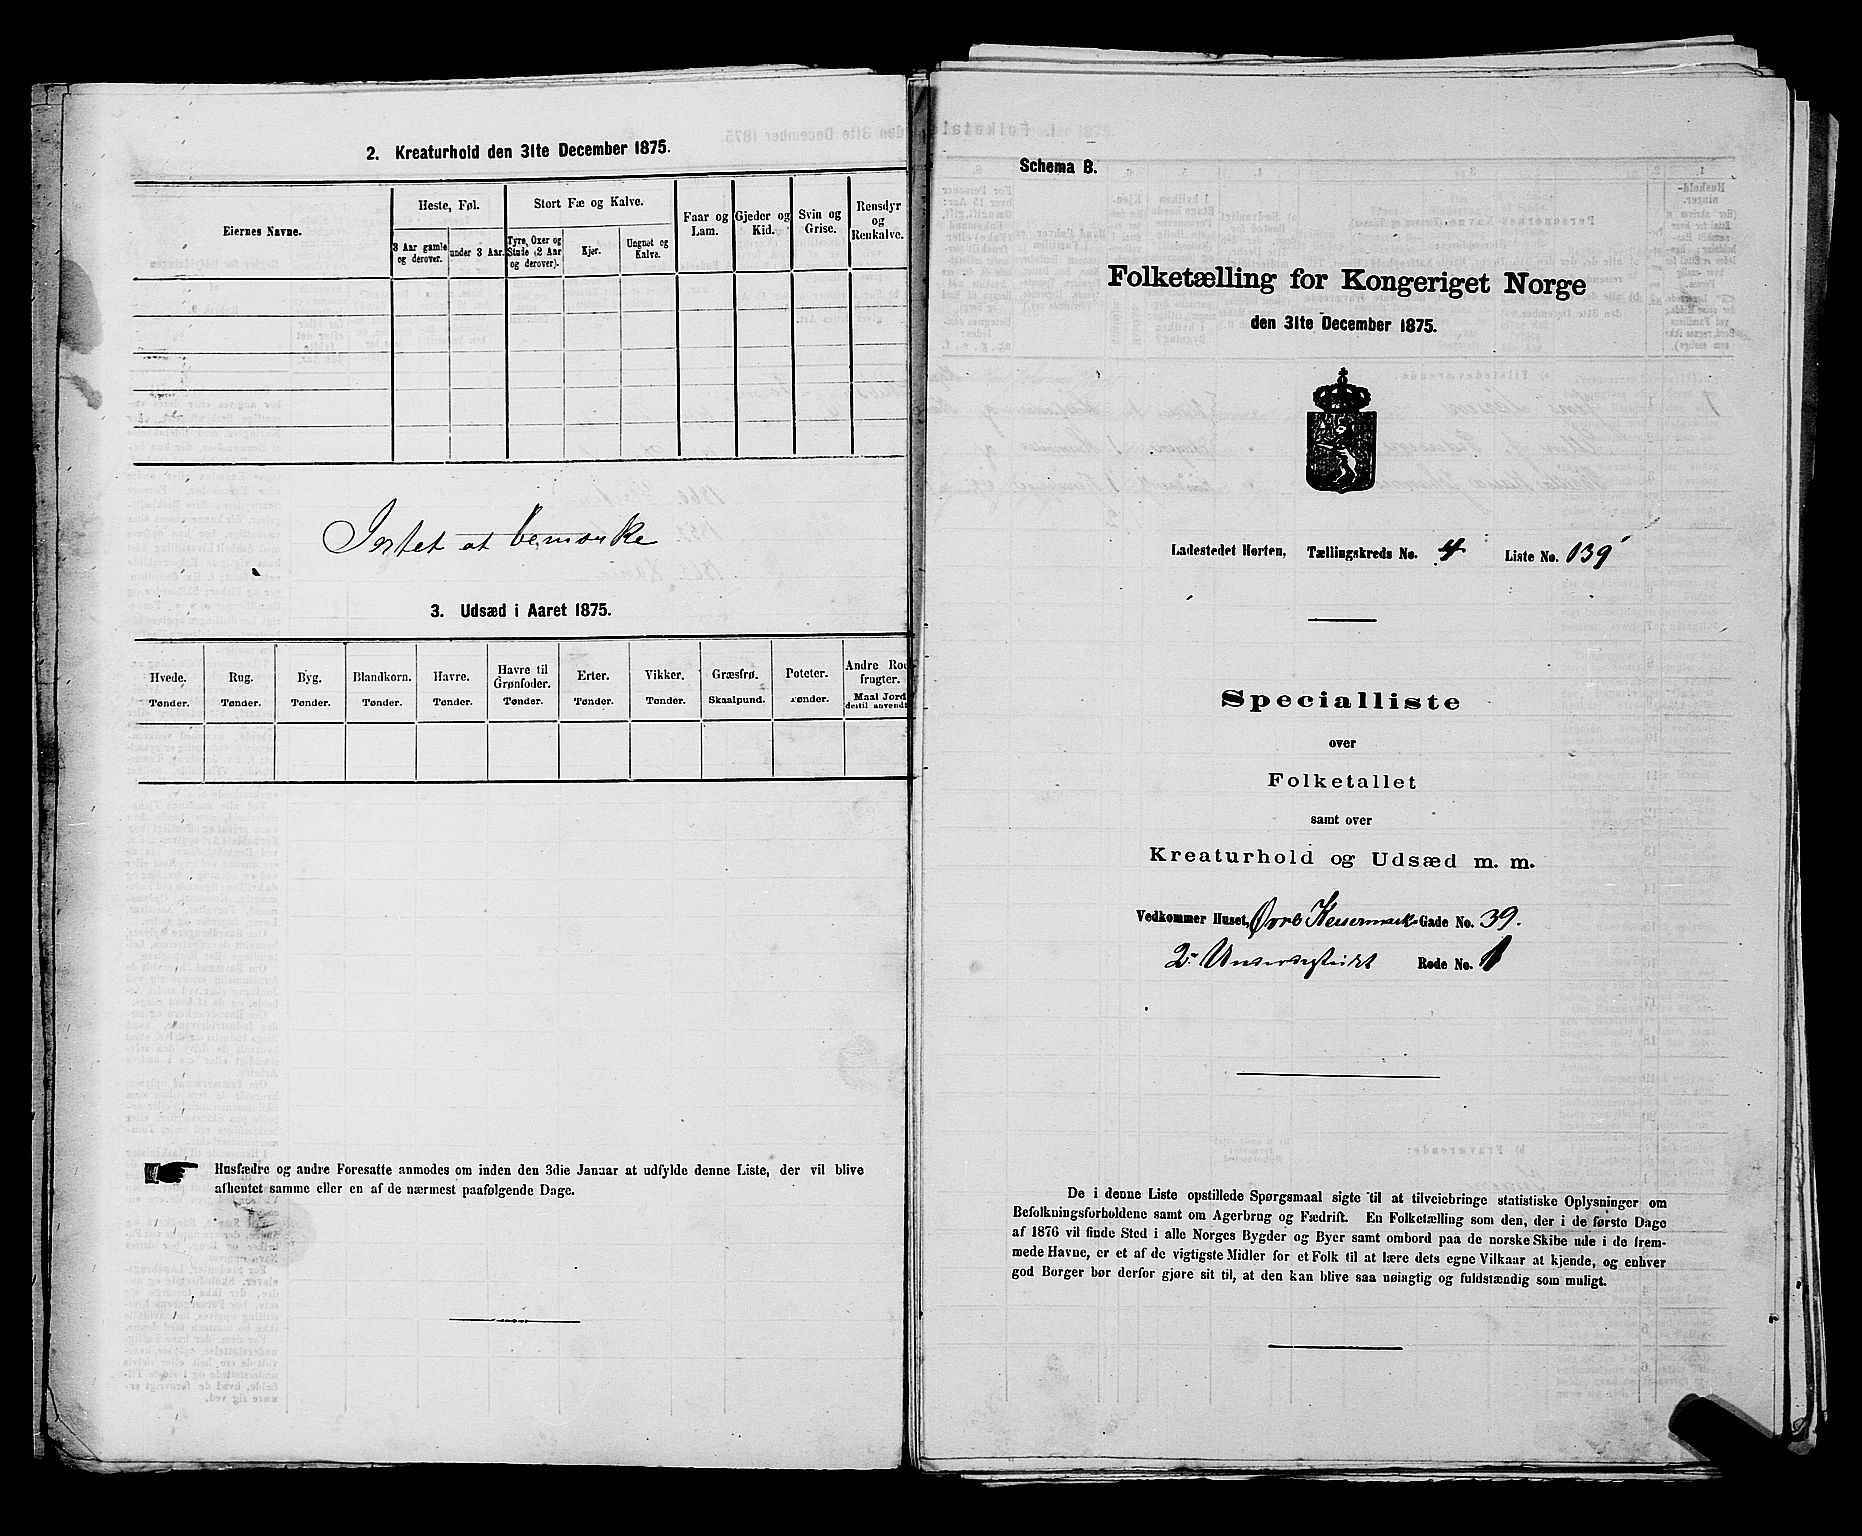 2. Kreaturhold den 31te December 1875.
Eiernes Navne.
Heste, Føl.
Stort Fæ og Kalve.
Faar og Lam.
Gjeder og Kid.
Svin og Grise.
Rensdyr og Renkalve.
3 Aar gamle og derover.
under 3 Aar.
Tyre, Oxer og Stude (2 Aar og derover).
Kjør.
Ungnøt og Kalve.
Intet at bemærke
3. Udsæd i Aaret 1875.
Hvede. Tønder.
Rug. Tønder.
Byg. Tønder.
Blandkorn. Tønder.
Havre. Tønder.
Havre til Grønfoder. Tønder.
Erter. Tønder.
Vikker. Tønder.
Græsfrø. Skaalpund.
Poteter. Tønder.
Andre Rod frugter. Maal Jord destil anvendt
Husfædre og andre Foresatte anmodes om inden den 3die Januar at udfylde denne Liste, der vil blive
afhentet samme eller en af de nærmest paafølgende Dage.
Schema B.
Folketælling for Kongeriget Norge
den 31te December 1875.
Ladestedet Horten, Tællingskreds No. 4 Liste No. 139
Specialliste
over
Folketallet
samt over
Kreaturhold og Udsæd m. m.
Vedkommer Huset, Gade No. 39.
2. Rode No. 1
De i denne Liste opstillede Spørgsmaal sigte til at tilveiebringe statistiske Oplysninger om
Befolkningsforholdene samt om Agerbrug og Fædrift. En Folketælling som den, der i de første Dage
af 1876 vil finde Sted i alle Norges Bygder og Byer samt ombord paa de norske Skibe ude i de frem-
mede Havne, er et af de vigtigste Midler for et Folk til at lære dets egne Vilkaar at kjende, og enhver
god Borger bør derfor gjøre sit til, at den kan blive saa nøiagtig og fuldstændig som muligt.